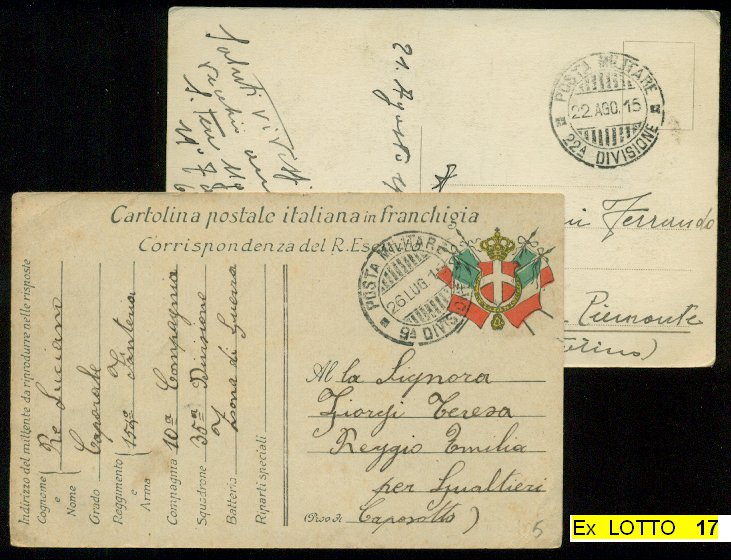 21. Agosto
Saluti vivissi
POSTA MILITARE
22 AGO. 15
22ª DIVISIONE
Ferrando
Piemonte
(Torino)
Cartolina postale italiana in franchigia
Corrispondenza del R. Esercito
POSTA MILITARE
26 LUG. 1
9ª DIVISIONE
Indirizzo del mittente da riprodurre nelle risposte
Cognome e Nome Re Luciano
Grado Caporale
Reggimento e Arma 154º Fanteria
Compagnia 10ª Compagnia
Squadrone 35ª Divisione
Batteria Zona di Guerra
Riparti speciali
Alla Signora
Giorgi Teresa
Reggio Emilia
per Gualtieri
(Prov. di Caporotto)
5
Ex LOTTO 17